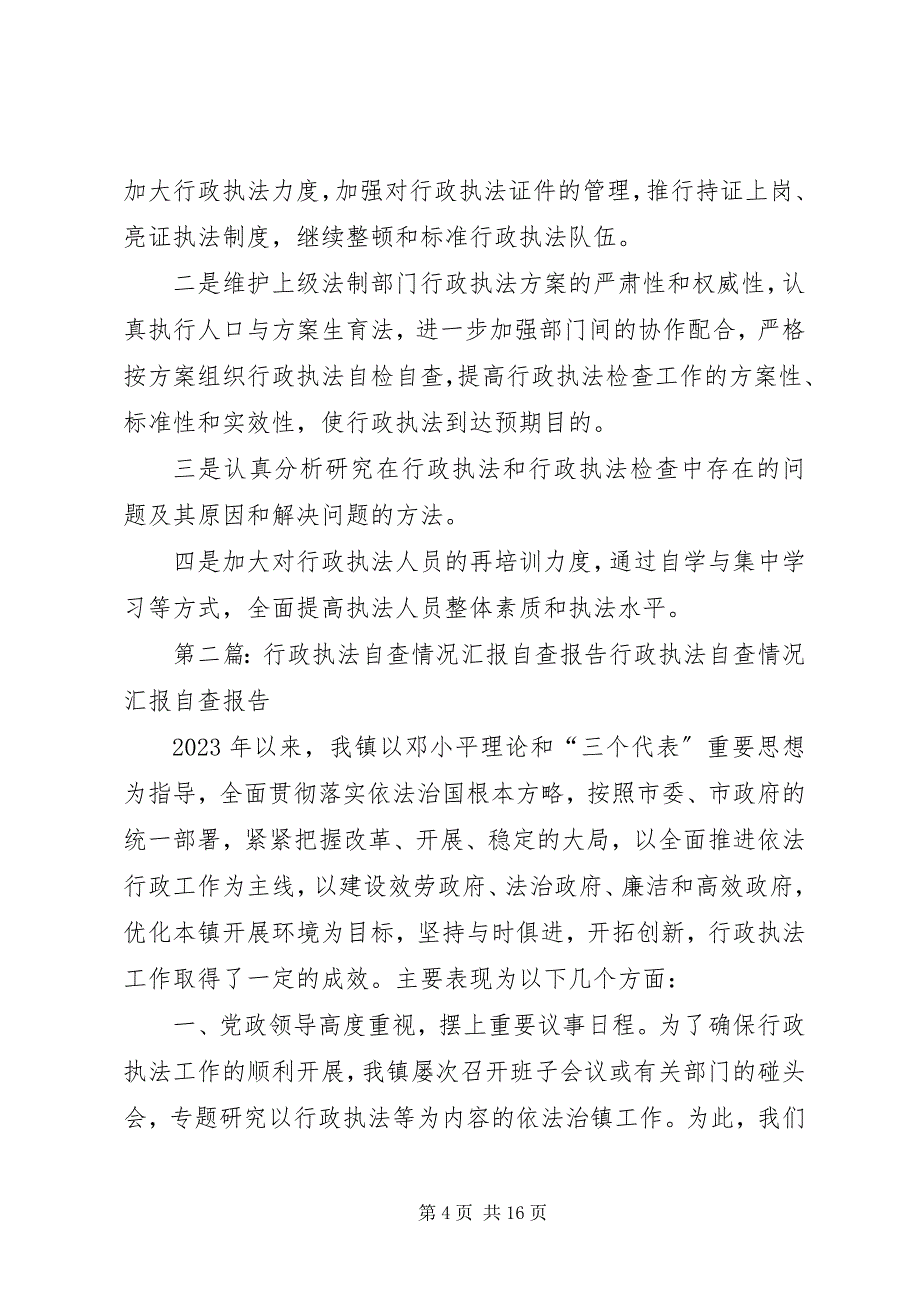 加大行政执法力度，加强对行政执法证件的管理，推行持证上岗、
亮证执法制度，继续整顿和标准行政执法队伍。
二是维护上级法制部门行政执法方案的严肃性和权威性，认
真执行人口与方案生育法，进一步加强部门间的协作配合，严格
按方案组织行政执法自检自查，提高行政执法检查工作的方案性、
标准性和实效性，使行政执法到达预期目的。
三是认真分析研究在行政执法和行政执法检查中存在的问
题及其原因和解决问题的方法。
四是加大对行政执法人员的再培训力度，通过自学与集中学
习等方式，全面提高执法人员整体素质和执法水平。
第二篇：行政执法自查情况汇报自查报告行政执法自查情况
汇报自查报告
2023 年以来，我镇以邓小平理论和“三个代表〞重要思想
为指导，全面贯彻落实依法治国根本方略，按照市委、市政府的
统一部署，紧紧把握改革、开展、稳定的大局，以全面推进依法
行政工作为主线，以建设效劳政府、法治政府、廉洁和高效政府，
优化本镇开展环境为目标，坚持与时俱进，开拓创新，行政执法
工作取得了一定的成效。主要表现为以下几个方面：
一、党政领导高度重视，摆上重要议事日程。为了确保行政
执法工作的顺利开展，我镇屡次召开班子会议或有关部门的碰头
会，专题研究以行政执法等为内容的依法治镇工作。为此，我们
第 4 页 共 16 页